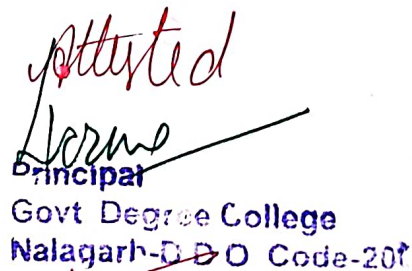 Attested
Principal
Govt Degree College
Nalagarh-D D O Code-201